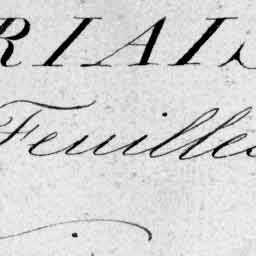 RIAIS
Feuilles